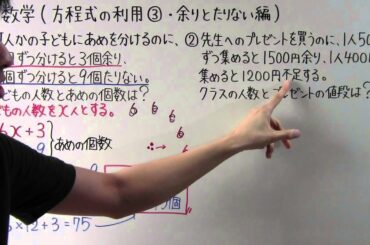 数学(方程式の利用③・余りとたりない編)
人かの子どもにあめを分けるのに、
個ずつ分けると3個余り、
個ずつ分けると9個たりない。
どもの人数とあめの個数は?
どもの人数をx人とする。
6 6 6 6
6x+3
あめの個数
∴→ 6
×12+3=75
②先生へのプレゼントを買うのに、1人50
ずつ集めると1500円余り、1人400
集めると1200円不足する。
クラスの人数と
ゼントの値段は?